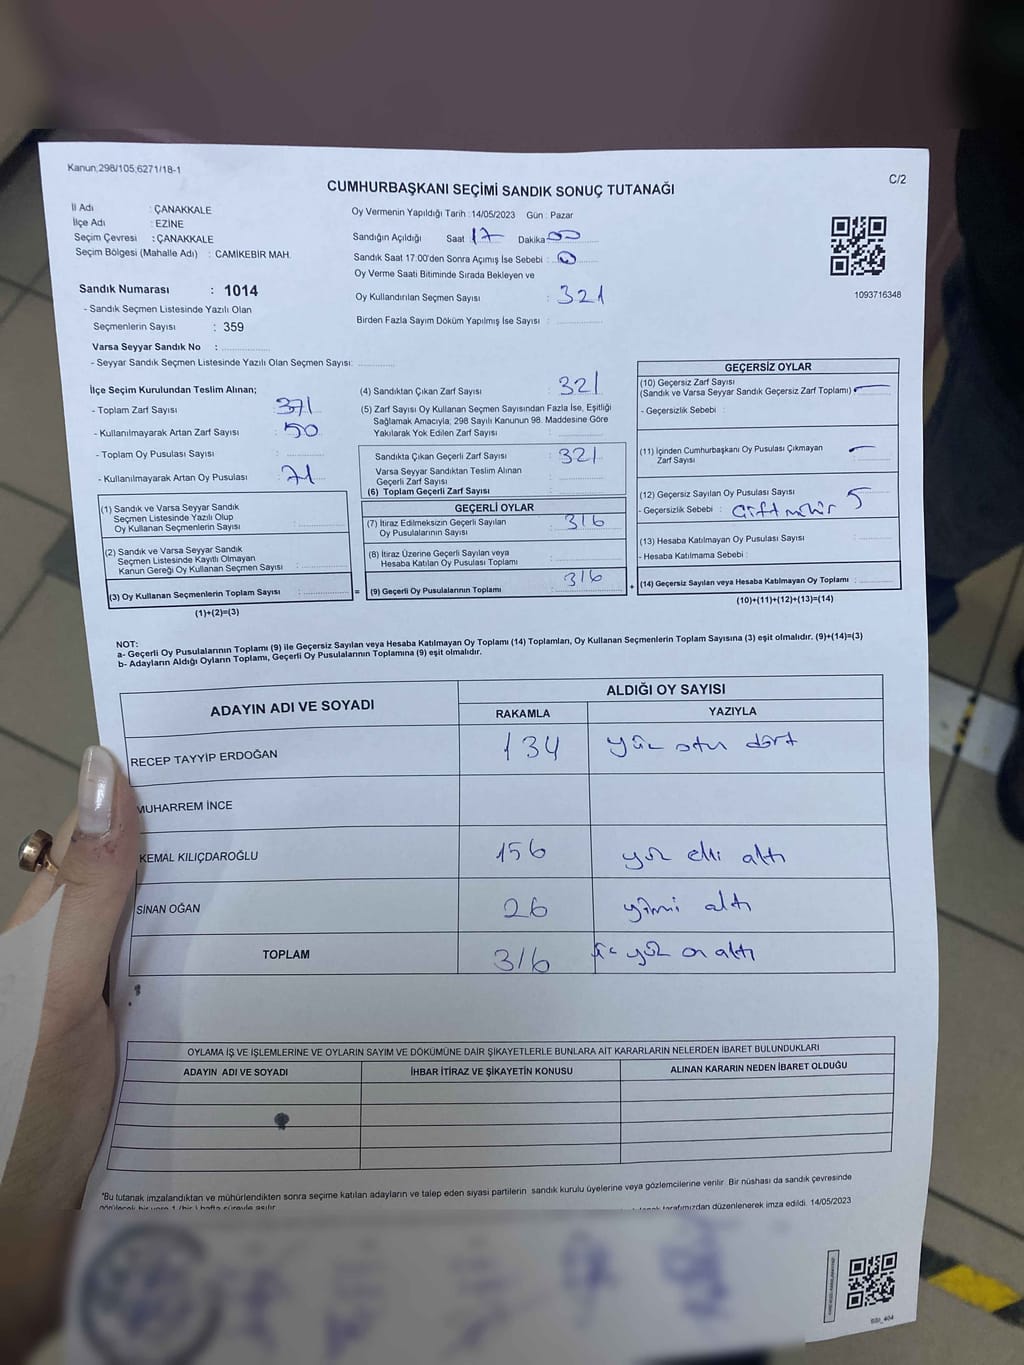 Kanun;298/105;6271/18-1
C/2
CUMHURBAŞKANI SEÇİMİ SANDIK SONUÇ TUTANAĞI
İl Adı : ÇANAKKALE
İlçe Adı : EZİNE
Seçim Çevresi : ÇANAKKALE
Seçim Bölgesi (Mahalle Adı) : CAMİKEBİR MAH.
Oy Vermenin Yapıldığı Tarih : 14/05/2023 Gün : Pazar
Sandığın Açıldığı Saat 17 Dakika 00
Sandık Saat 17:00'den Sonra Açımış İse Sebebi :
Oy Verme Saati Bitiminde Sırada Bekleyen ve
Oy Kullandırılan Seçmen Sayısı : 321
Birden Fazla Sayım Döküm Yapılmış İse Sayısı :
1093716348
Sandık Numarası : 1014
- Sandık Seçmen Listesinde Yazılı Olan
Seçmenlerin Sayısı : 359
Varsa Seyyar Sandık No :
- Seyyar Sandık Seçmen Listesinde Yazılı Olan Seçmen Sayısı:
İlçe Seçim Kurulundan Teslim Alınan;
- Toplam Zarf Sayısı : 371
- Kullanılmayarak Artan Zarf Sayısı : 50
- Toplam Oy Pusulası Sayısı :
- Kullanılmayarak Artan Oy Pusulası : 71
(1) Sandık ve Varsa Seyyar Sandık
Seçmen Listesinde Yazılı Olup
Oy Kullanan Seçmenlerin Sayısı :
(2) Sandık ve Varsa Seyyar Sandık
Seçmen Listesinde Kayıtlı Olmayan
Kanun Gereği Oy Kullanan Seçmen Sayısı :
(3) Oy Kullanan Seçmenlerin Toplam Sayısı : =
(1)+(2)=(3)
(4) Sandıktan Çıkan Zarf Sayısı : 321
(5) Zarf Sayısı Oy Kullanan Seçmen Sayısından Fazla İse, Eşitliği
Sağlamak Amacıyla; 298 Sayılı Kanunun 98. Maddesine Göre
Yakılarak Yok Edilen Zarf Sayısı :
Sandıkta Çıkan Geçerli Zarf Sayısı : 321
Varsa Seyyar Sandıktan Teslim Alınan
Geçerli Zarf Sayısı :
(6) Toplam Geçerli Zarf Sayısı :
GEÇERLİ OYLAR
(7) İtiraz Edilmeksizin Geçerli Sayılan
Oy Pusulalarının Sayısı : 316
(8) İtiraz Üzerine Geçerli Sayılan veya
Hesaba Katılan Oy Pusulası Toplamı :
(9) Geçerli Oy Pusulalarının Toplamı : 316 +
GEÇERSİZ OYLAR
(10) Geçersiz Zarf Sayısı
(Sandık ve Varsa Seyyar Sandık Geçersiz Zarf Toplamı) : —
- Geçersizlik Sebebi :
(11) İçinden Cumhurbaşkanı Oy Pusulası Çıkmayan
Zarf Sayısı : —
(12) Geçersiz Sayılan Oy Pusulası Sayısı : 5
- Geçersizlik Sebebi : Çift mühür
(13) Hesaba Katılmayan Oy Pusulası Sayısı :
- Hesaba Katılmama Sebebi :
(14) Geçersiz Sayılan veya Hesaba Katılmayan Oy Toplamı :
(10)+(11)+(12)+(13)=(14)
NOT:
a- Geçerli Oy Pusulalarının Toplamı (9) ile Geçersiz Sayılan veya Hesaba Katılmayan Oy Toplamı (14) Toplamları, Oy Kullanan Seçmenlerin Toplam Sayısına (3) eşit olmalıdır. (9)+(14)=(3)
b- Adayların Aldığı Oyların Toplamı, Geçerli Oy Pusulalarının Toplamına (9) eşit olmalıdır.
ADAYIN ADI VE SOYADI ALDIĞI OY SAYISI
RAKAMLA YAZIYLA
RECEP TAYYİP ERDOĞAN 134 yüz otuz dört
MUHARREM İNCE
KEMAL KILIÇDAROĞLU 156 yüz elli altı
SİNAN OĞAN 26 yirmi altı
TOPLAM 316 üç yüz on altı
OYLAMA İŞ VE İŞLEMLERİNE VE OYLARIN SAYIM VE DÖKÜMÜNE DAİR ŞİKAYETLERLE BUNLARA AİT KARARLARIN NELERDEN İBARET BULUNDUKLARI
ADAYIN ADI VE SOYADI İHBAR İTİRAZ VE ŞİKAYETİN KONUSU ALINAN KARARIN NEDEN İBARET OLDUĞU
"Bu tutanak imzalandıktan ve mühürlendikten sonra seçime katılan adayların ve talep eden siyasi partilerin sandık kurulu üyelerine veya gözlemcilerine verilir. Bir nüshası da sandık çevresinde
tarafımızdan düzenlenerek imza edildi. 14/05/2023
SSI_404